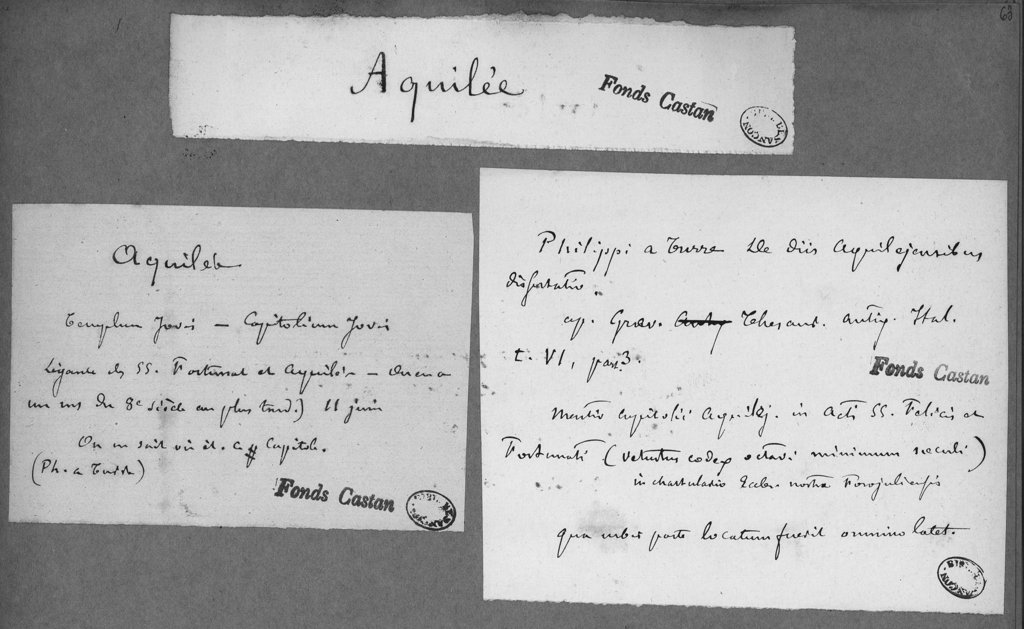 63
Aquilée
Fonds Castan
Aquilée
Templum Jovis — Capitolium Jovis
Légende des SS. Fortunat et Aquilée — On en a
un ms du 8e siècle au plus tard.) 11 juin
On ne sait où ét. ce Capitole.
(Ph. a Turre)
Fonds Castan
Philippi a Turre De Diis Aquilejensibus
dissertatio.
ap. Græv. Thesaur. antiq. Ital.
t. VI, pars 3.
Fonds Castan
Mentio capitolii Aquilej. in Actis SS. Felicis et
Fortunati (vetustus codex octavi minimum sæculi)
in chartulario nostræ Forojuliensis
qua urbis parte locatum fuerit omnino latet.